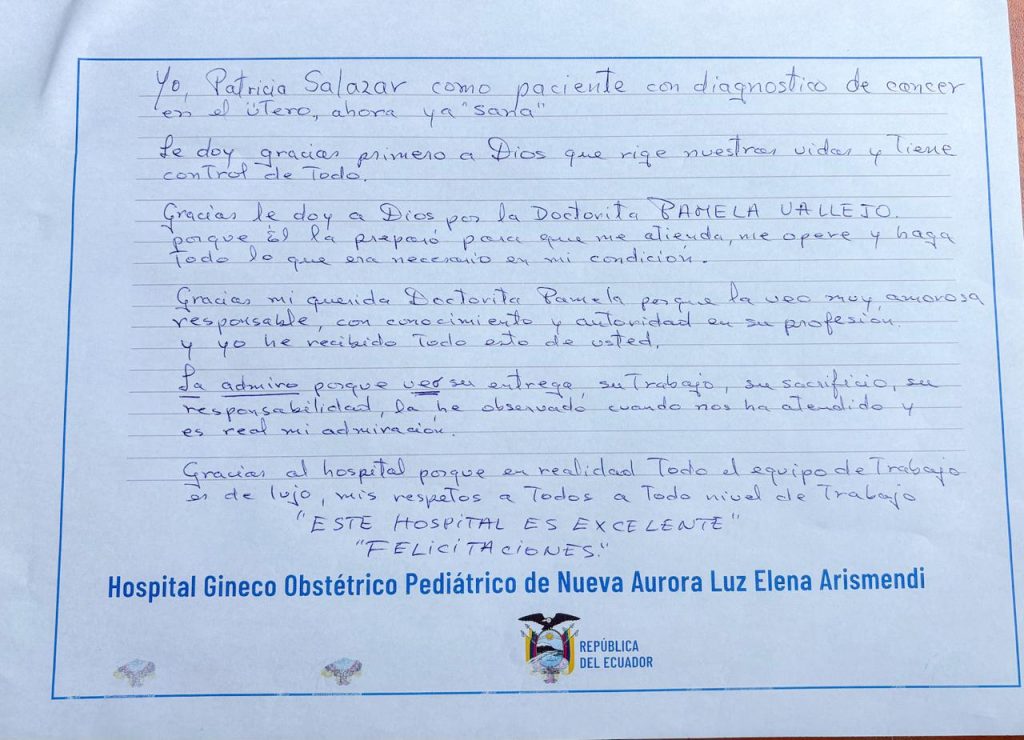 Yo, Patricia Salazar como paciente con diagnostico de cancer
en el útero, ahora ya "sana"
Le doy gracias primero a Dios que rige nuestras vidas y Tiene
control de Todo.
Gracias le doy a Dios por la Doctorita PAMELA VALLEJO.
porque Él la preparó para que me atienda, me opere y haga
Todo lo que era necesario en mi condición.
Gracias mi querida Doctorita Pamela porque la veo muy amorosa
responsable, con conocimiento y autoridad en su profesión.
y yo he recibido Todo esto de usted.
La admiro porque veo su entrega, su Trabajo, su sacrificio, su
responsabilidad, la he observado cuando nos ha atendido y
es real mi admiración.
Gracias al hospital porque en realidad Todo el equipo de Trabajo
es de lujo, mis respetos a Todos a Todo nivel de Trabajo
"ESTE HOSPITAL ES EXCELENTE"
"FELICITACIONES."
Hospital Gineco Obstétrico Pediátrico de Nueva Aurora Luz Elena Arismendi
REPÚBLICA
DEL ECUADOR